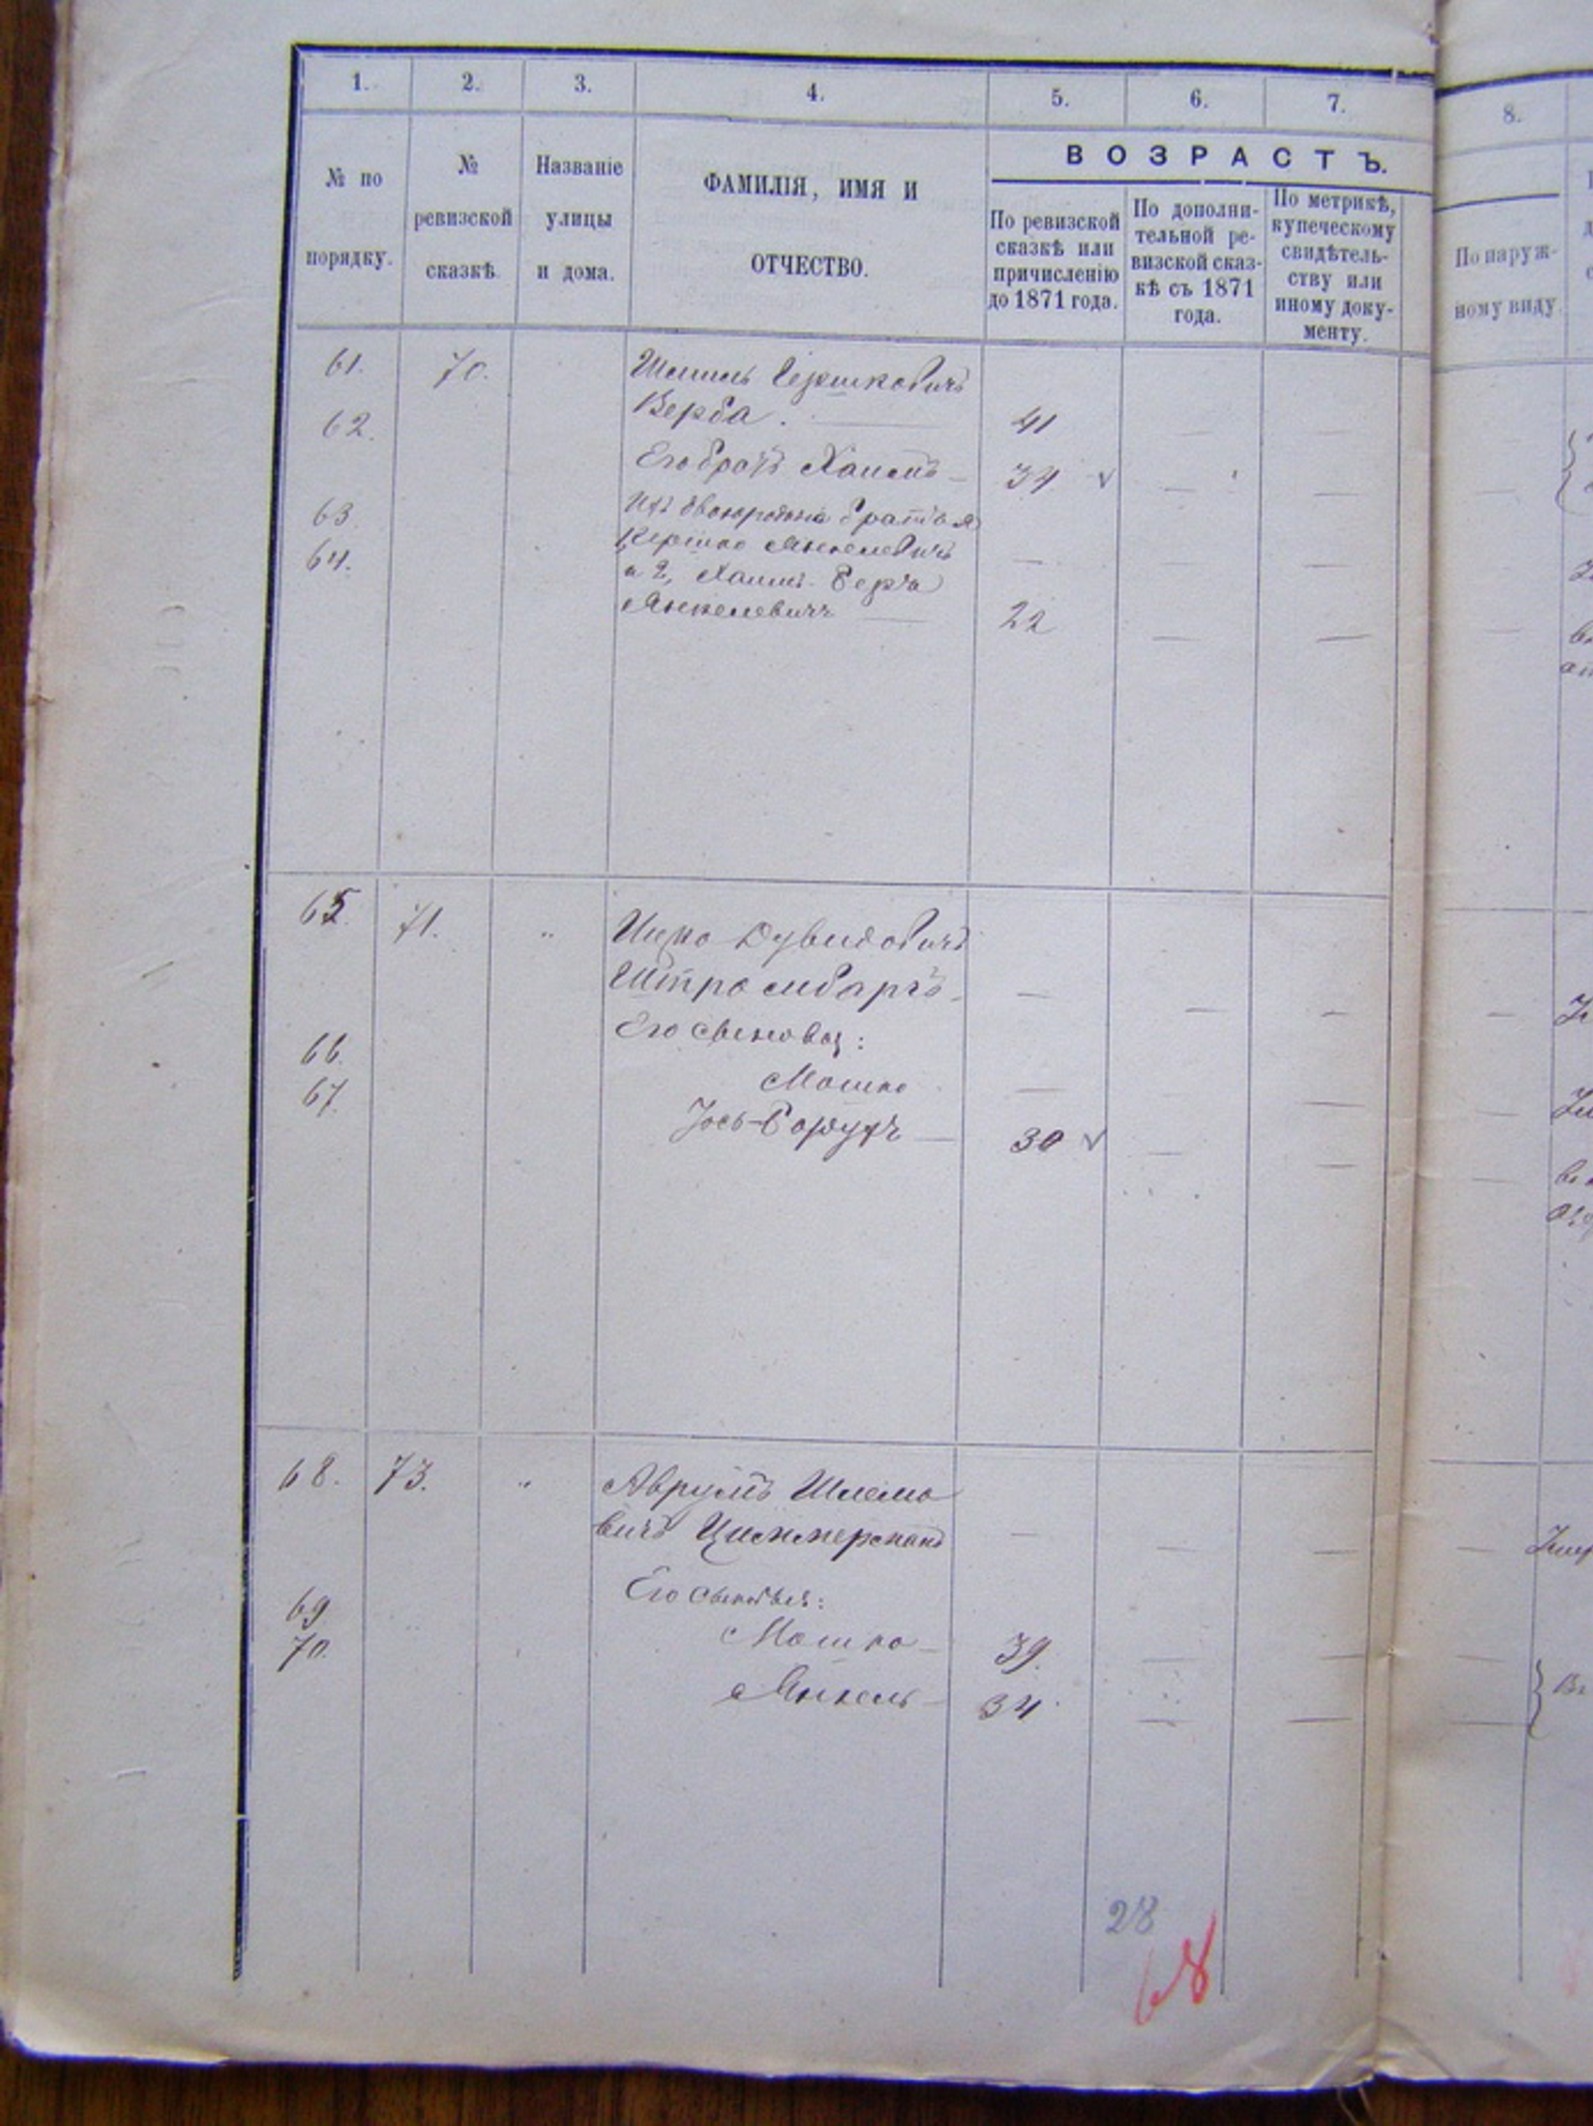 1. 2. 3. 4. 5. 6. 7. 8.
ВОЗРАСТЪ.
№ по
порядку.
№
ревизской
сказкѣ.
Названіе
улицы
и дома.
ФАМИЛІЯ, ИМЯ И
ОТЧЕСТВО.
По ревизской
сказкѣ или
причисленію
до 1871 года.
По дополни-
тельной ре-
визской сказ-
кѣ съ 1871
года.
По метрикѣ,
купеческому
свидѣтель-
ству или
иному доку-
менту.
По наруж-
ному виду.
61. 70. Гершковичъ
Верба. — 41 — —
62.
Его братъ Хаимъ — 34 ✓ — —
63. Ихъ двоюродные братья
Гершко Янкелевичъ — — —
64. и 2, Хаимъ-Берка
Янкелевичъ — 22 — —
65. 71. " Ицко Дувидовичъ
Штромбаргъ — — — —
Его сыновья:
66. Мошко — — —
67. Іось-Борухъ — 30 ✓ — —
68. 73. " Аврумъ Шлемо
вичъ Циммерманъ — — —
Его сыновья:
69 Мошко — 39. — —
70. Янкель — 34. — —
28
68